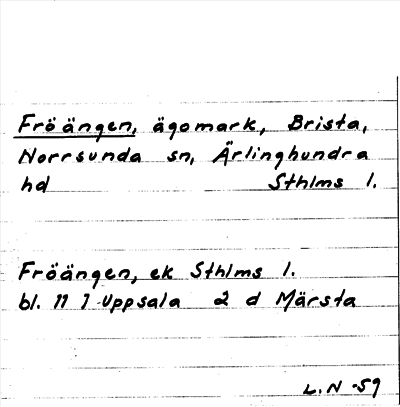 Fröängen, ägomark, Brista,
Norrsunda sn, Ärlinghundra
hd Sthlms l.
Fröängen, ek Sthlms l.
bl. 11 I Uppsala 2 d Märsta
L.N -59